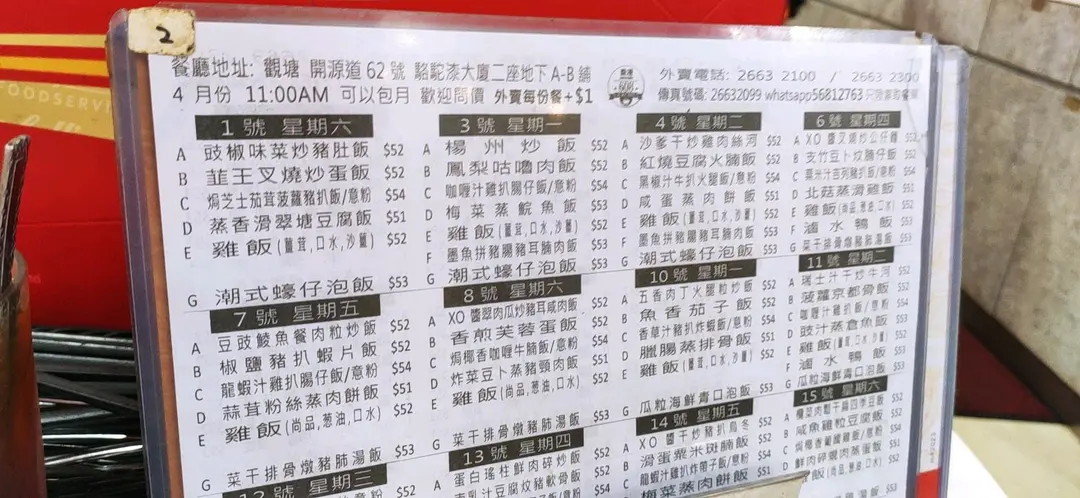 2
FOODSERV
餐廳地址: 觀塘 開源道62號 駱駝漆大廈二座地下A-B舖
外賣電話: 2663 2100 / 2663 2300
4 月份 11:00AM 可以包月 歡迎問價 外賣每份餐+$1
傳真號碼: 26632099 whatsapp56812763
1號 星期六
A 豉椒味菜炒豬肚飯 $52
B 韮王叉燒炒蛋飯 $52
C 焗芝士茄茸菠蘿豬扒飯/意粉 $54
D 蒸香滑翠塘豆腐飯 $51
E 雞飯(薑茸,口水,沙薑) $52
G 潮式蠔仔泡飯 $53
3號 星期一
A 楊州炒飯 $52
B 鳳梨咕嚕肉飯 $52
C 咖喱汁雞扒腸仔飯/意粉 $54
D 梅菜蒸鯇魚飯 $53
E 雞飯(薑茸,口水,沙薑) $52
F 墨魚拼豬腸豬耳腩肉飯 $53
G 潮式蠔仔泡飯 $53
4號 星期二
A 沙爹干炒雞肉絲河 $52
B 紅燒豆腐火腩飯 $52
C 黑椒汁牛扒火腿飯/意粉 $54
D 咸蛋蒸肉餅飯 $51
E 雞飯(薑茸,口水,沙薑) $52
F 墨魚拼豬腸豬耳腩肉飯 $53
G 潮式蠔仔泡飯 $53
6號 星期四
A XO醬叉燒炒公仔麵 $52
B 支竹豆卜炆腩仔飯 $52
C 粟米汁吉列豬扒飯/意粉 $54
D 北菇蒸滑雞飯 $51
E 雞飯(尚品,葱油,口水) $52
F 滷水鴨飯 $53
G 菜干排骨燉豬肺湯飯 $53
7號 星期五
A 豆豉鯪魚餐肉粒炒飯 $52
B 椒鹽豬扒蝦片飯 $52
C 龍蝦汁雞扒腸仔飯/意粉 $54
D 蒜茸粉絲蒸肉餅飯 $51
E 雞飯(尚品,葱油,口水) $52
G 菜干排骨燉豬肺湯飯 $53
8號 星期六
A XO醬翠肉瓜炒豬耳咸肉飯 $52
B 香煎芙蓉蛋飯 $52
C 焗椰香咖喱牛腩飯/意粉 $54
D 炸菜豆卜蒸豬頸肉飯 $51
E 雞飯(尚品,葱油,口水) $52
G 菜干排骨燉豬肺湯飯 $53
10號 星期一
A 五香肉丁火腿粒炒飯 $52
B 魚香茄子飯 $52
C 香草汁豬扒炸蝦飯/意粉 $54
D 臘腸蒸排骨飯 $51
E 雞飯 $52
G 瓜粒海鮮青口泡飯 $53
11號 星期二
A 瑞士汁干炒牛河 $52
B 菠蘿京都骨飯 $52
C 咖喱汁 飯/意粉 $54
D 豉汁蒸倉魚飯 $53
E 雞飯 $52
F 滷水鴨飯 $53
G 瓜粒海鮮青口泡飯 $53
12號 星期三
意粉 $52
13號 星期四
A 蛋白瑤柱鮮肉碎炒飯 $52
南乳汁豆腐炆豬軟骨飯 $52
$54
14號 星期五
A XO醬干炒豬扒烏冬 $52
B 滑蛋粟米斑腩飯 $52
C 龍蝦汁雞扒炸帶子飯/意粉 $54
梅菜蒸肉餅飯 $51
15號 星期六
A 欖菜肉鬆干扁四季豆飯 $52
B 咸魚雞粒豆腐飯 $52
C 飯/意粉 $54
D 鮮肉碎蝦肉蒸蛋飯 $51
飯(尚品,葱油,口水) $52
湯飯 $53